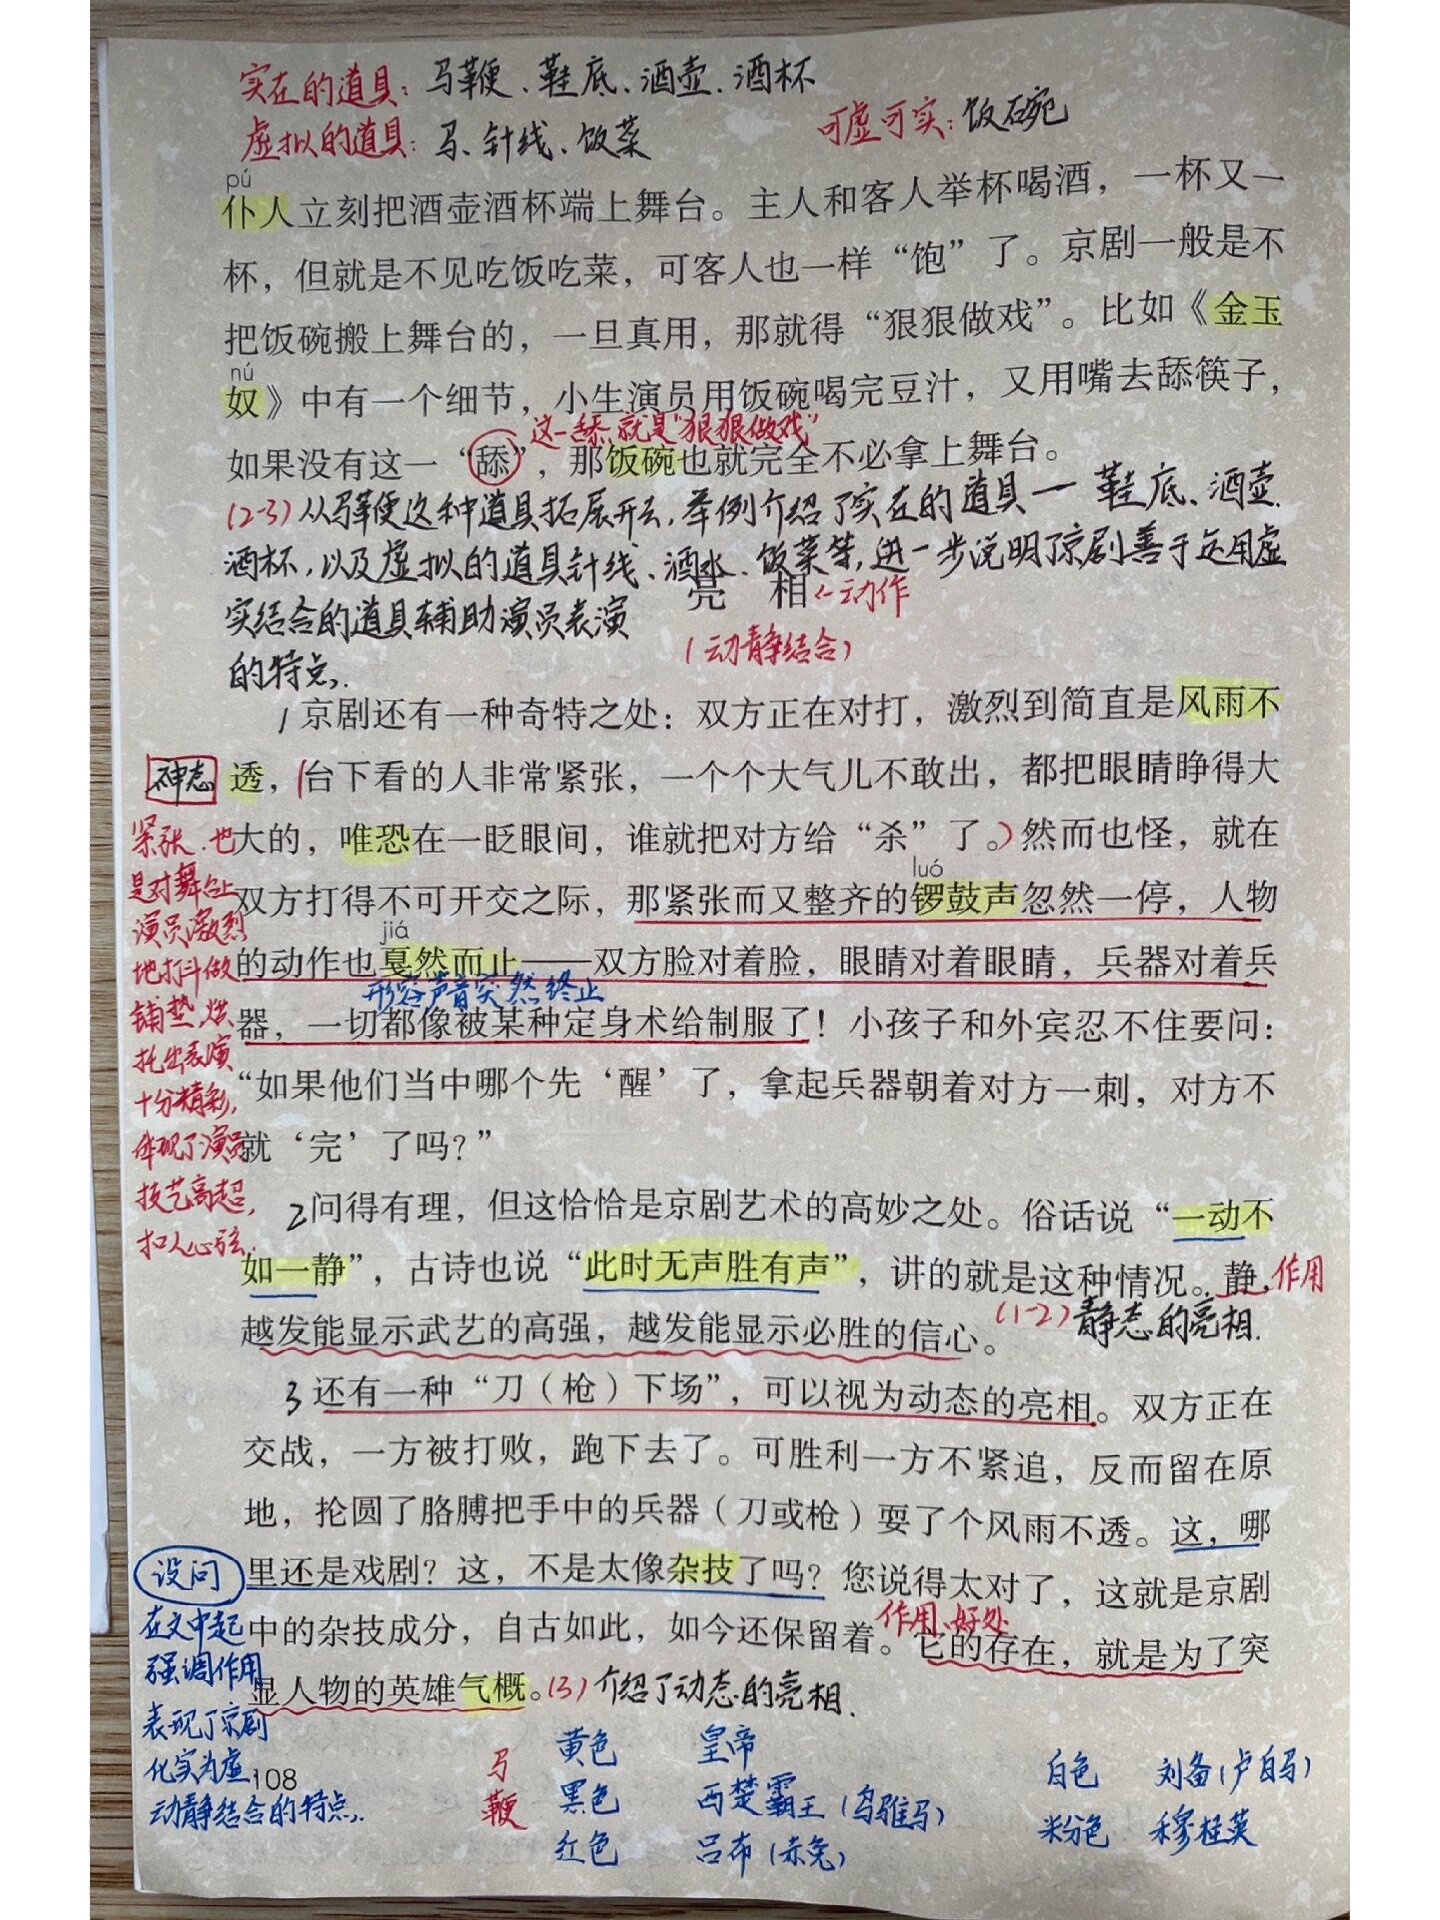 实在的道具：马鞭、鞋底、酒壶、酒杯
可虚可实：饭碗
虚拟的道具：马、针线、饭菜
pú
仆人立刻把酒壶酒杯端上舞台。主人和客人举杯喝酒，一杯又一
杯，但就是不见吃饭吃菜，可客人也一样“饱”了。京剧一般是不
把饭碗搬上舞台的，一旦真用，那就得“狠狠做戏”。比如《金玉
nú
奴》中有一个细节，小生演员用饭碗喝完豆汁，又用嘴去舔筷子，
这一舔，就是“狠狠做戏”
如果没有这一“舔”，那饭碗也就完全不必拿上舞台。
(2-3)从马鞭这种道具拓展开去，举例介绍了实在的道具—鞋底、酒壶、
酒杯，以及虚拟的道具针线、酒水、饭菜等，进一步说明了京剧善于运用虚
实结合的道具辅助演员表演
的特点.
亮 相←动作
(动静结合)
1京剧还有一种奇特之处：双方正在对打，激烈到简直是风雨不
透，台下看的人非常紧张，一个个大气儿不敢出，都把眼睛睁得大
大的，唯恐在一眨眼间，谁就把对方给“杀”了。然而也怪，就在
luó
双方打得不可开交之际，那紧张而又整齐的锣鼓声忽然一停，人物
jiá
的动作也戛然而止——双方脸对着脸，眼睛对着眼睛，兵器对着兵
形容声音突然终止
器，一切都像被某种定身术给制服了！小孩子和外宾忍不住要问：
“如果他们当中哪个先‘醒’了，拿起兵器朝着对方一刺，对方不
就‘完’了吗？”
神态
紧张.也
是对舞台上
演员激烈
地打斗做
铺垫.烘
托出表演
十分精彩,
体现了演员
技艺高超,
扣人心弦.
2问得有理，但这恰恰是京剧艺术的高妙之处。俗话说“一动不
如一静”，古诗也说“此时无声胜有声”，讲的就是这种情况。静，
作用
越发能显示武艺的高强，越发能显示必胜的信心。
(1-2)静态的亮相.
3还有一种“刀（枪）下场”，可以视为动态的亮相。双方正在
交战，一方被打败，跑下去了。可胜利一方不紧追，反而留在原
地，抡圆了胳膊把手中的兵器（刀或枪）耍了个风雨不透。这，哪
里还是戏剧？这，不是太像杂技了吗？您说得太对了，这就是京剧
作用、好处
中的杂技成分，自古如此，如今还保留着。它的存在，就是为了突
显人物的英雄气概。(3)介绍了动态的亮相.
设问
在文中起
强调作用
表现了京剧
化实为虚.
动静结合的特点,.
108
马鞭
黄色 皇帝
黑色 西楚霸王(乌骓马)
红色 吕布(赤兔)
白色 刘备(卢白马)
粉色 穆桂英